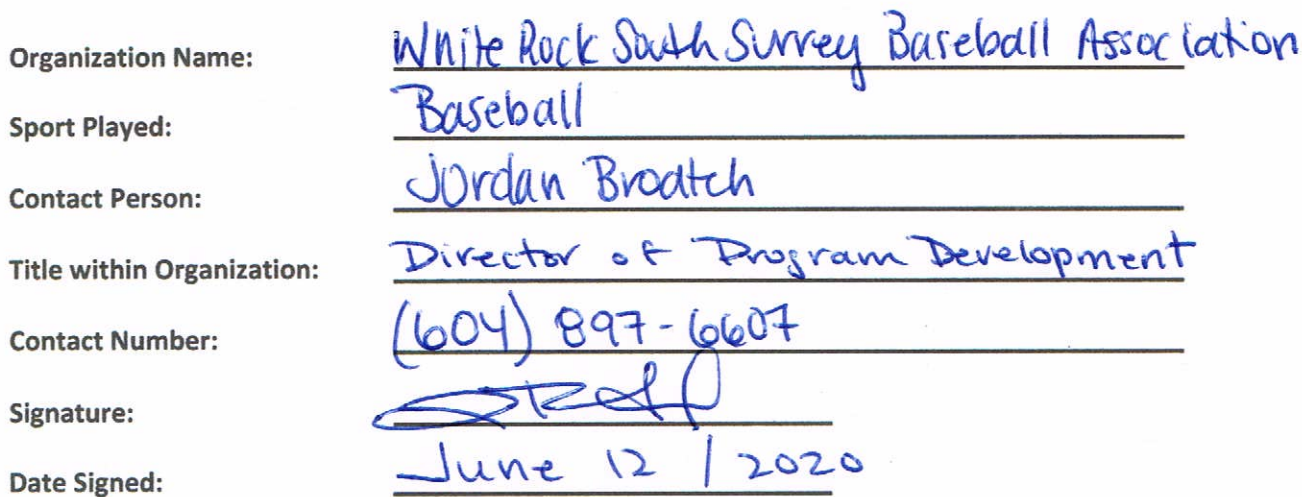 Organization Name: White Rock South Surrey Baseball Association
Sport Played: Baseball
Contact Person: Jordan Brodtch
Title within Organization: Director of Program Development
Contact Number: (604) 897-6607
Signature:
Date Signed: June 12 / 2020